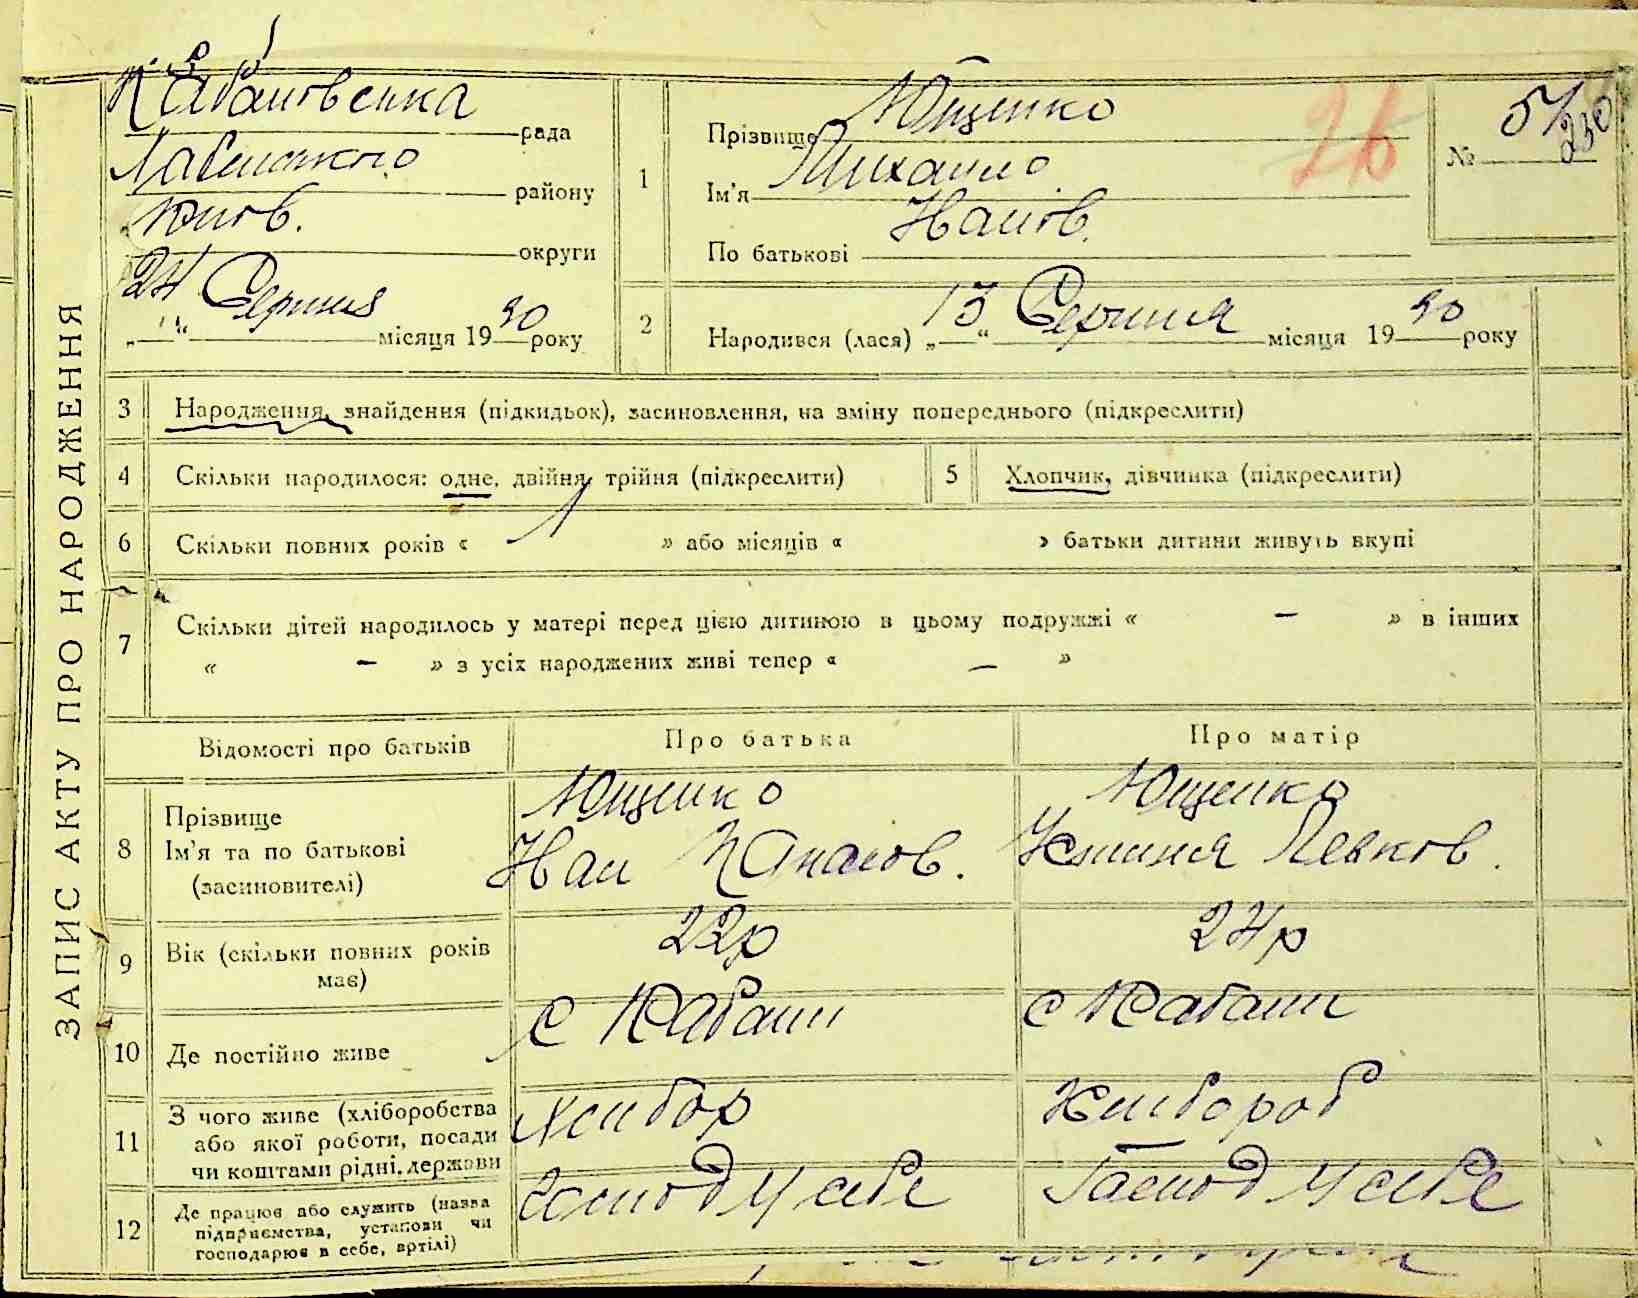 ЗАПИС АКТУ ПРО НАРОДЖЕННЯ
Кабановська рада
району
Київ. округи
24 Серпня місяця 1930 року
1
Прізвище Ющенко
Ім'я Михайло
По батькові
26
№ 51
230
2
Народився (лася) „13“ Серпня місяця 1930 року
3 Народження, знайдення (підкидьок), засиновлення, на зміну попереднього (підкреслити)
4 Скільки народилося: одне, двійня, трійня (підкреслити)
5 Хлопчик, дівчинка (підкреслити)
6 Скільки повних років « 1 » або місяців « » батьки дитини живуть вкупі
7 Скільки дітей народилось у матері перед цією дитиною в цьому подружжі « — » в інших
« — » з усіх народжених живі тепер « — »
Відомості про батьків Про батька Про матір
8 Прізвище
Ім'я та по батькові
(засиновителі)
Ющенко
Панасов.
Ющенко
Левков.
9 Вік (скільки повних років
має)
22р
24р
10 Де постійно живе
с Кабани
с Кабани
11 З чого живе (хліборобства
або якої роботи, посади
чи коштами рідні, держави
Хлибор
Хлибороб
12 Де працює або служить (назва
підприємства, установи чи
господарює в себе, артілі)
Господ у себе
Господ у себе